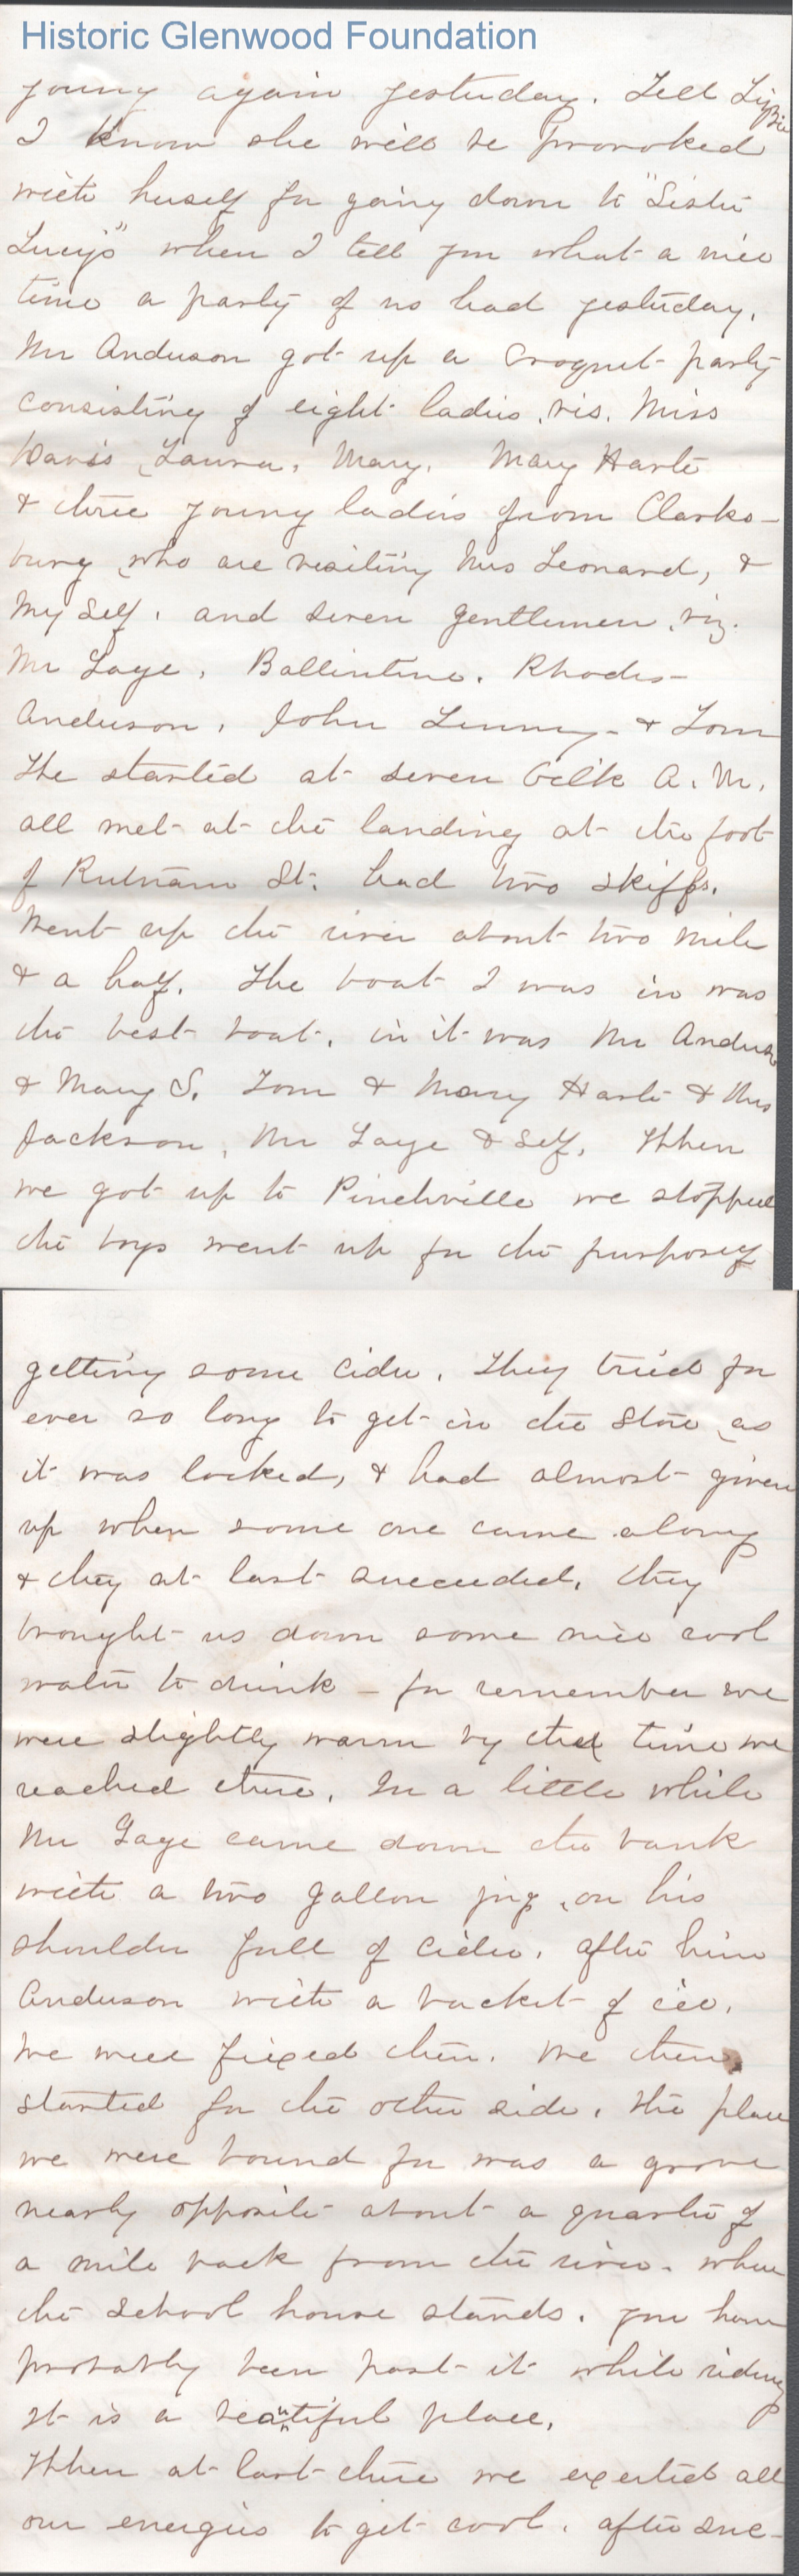 Historic Glenwood Foundation
young again yesterday. Tell Libbie
I know she will be provoked
with herself for going down to "Sister
Lucy's" when I tell you what a nice
time a party of us had yesterday.
Mr Anderson got up a Croquet party
consisting of eight ladies, vis. Miss
Davis, Laura, Mary, Mary Harte
& three young ladies from Clarks-
burg, who are visiting Mrs Leonard, &
My Self, and seven gentlemen, viz.
Mr Gage, Ballintine, Rhodes-
Anderson, John & Tom
We started at seven O'clk A.M.
all met at the landing at the foot
of Putnam St. had two skiffs.
Went up the river about two mile
& a half. The boat I was in was
the best boat, in it was Mr Anderson
& Mary S. Tom & Mary Harte & Mrs
Jackson, Mr Gage & Self. When
we got up to Pinchville we stopped
the boys went up for the purpose of
getting some Cider. They tried for
ever so long to get in the Store, as
it was locked, & had almost given
up when some one came along
& they at last succeeded, they
brought us down some nice cool
water to drink - for remember we
were slightly warm by the time we
reached there. In a little while
Mr Gage came down the bank
with a two gallon jug, on his
shoulder full of Cider, after him
Anderson with a bucket of ice.
We were fixed then. We then
started for the other side, the place
we were bound for was a grove
nearly opposite about a quarter of
a mile back from the river. where
the School house stands. you have
probably been past it while riding
It is a beautiful place.
When at last there we exerted all
our energies to get cool. after suc-